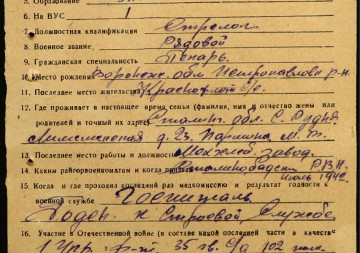 5. Образование
6. На ВУС 1
7. Должностная квалификация Стрелок
8. Военное звание Рядовой
9. Гражданская специальность Пекарь
10. Место рождения Воронеж. обл Петропавловск р-н
11. Последнее место жительства Краснофлот с/с
12. Где проживает в настоящее время семья (фамилия, имя и отчество жены или
родителей и точный их адрес) обл. С.
д. 23. М. Т.
13. Последнее место работы и должность завод.
14. Каким райгорвоенкоматом и когда призван Сталинобадск РВК
июль 1942
15. Когда и где проходил последний раз медкомиссию и результат годности к
военной службе Госпиталь
Годен к строевой службе
16. Участие в Отечественной войне (в составе какой последней части в качестве
1 Укр. ф-т. 35 гв. с/д 102 полк